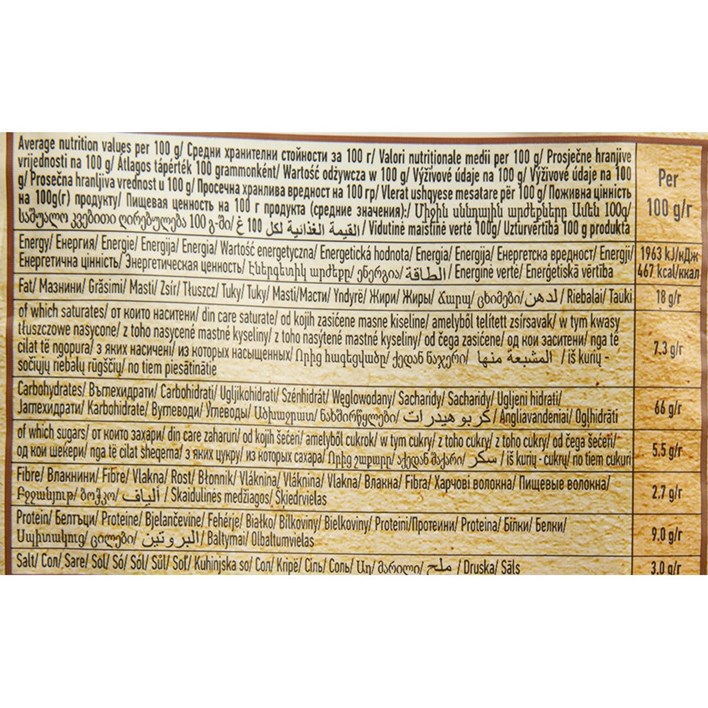 Average nutrition values per 100 g/ Средни хранителни стойности за 100 г/ Valori nutriționale medii per 100 g/ Prosječne hranjive
vrijednosti na 100 g/ Átlagos tápérték 100 grammonként/ Wartość odżywcza w 100 g/ Výživové údaje na 100 g/ Výživové údaje na 100
g/ Prosečna hranljiva vrednost u 100 g/ Просечна хранлива вредност на 100 гр/ Vlerat ushqyese mesatare për 100 g/ Поживна цінність
на 100g(г) продукту/ Пищевая ценность на 100 г продукта (средние значения):/ Միջին սննդային արժեքները Ամեն 100գ/
საშუალო კვებითი ღირებულება 100 გ-ში/ القيمة الغذائية لكل 100 غ/ Vidutinė maistinė vertė 100g/ Uzturvērtība 100 g produkta
Per
100 g/г
Energy/ Енергия/ Energie/ Energija/ Energia/ Wartość energetyczna/ Energetická hodnota/ Energia/ Energija/ Енергетска вредност/ Energji/
Енергетична цінність/ Энергетическая ценность/ Էներգետիկ արժեքը/ ენერგია/ الطاقة/ Energinė vertė/ Enerģētiskā vērtība
1963 kJ/кДж
467 kcal/ккал
Fat/ Мазнини/ Grăsimi/ Masti/ Zsír/ Tłuszcz/ Tuky/ Tuky/ Masti/Масти/ Yndyrë/ Жири/ Жиры/ Ճարպ/ ცხიმები/ لدهن/ Riebalai/ Tauki
18 g/г
of which saturates/ от които наситени/ din care saturate/ od kojih zasićene masne kiseline/ amelyből telített zsírsavak/ w tym kwasy
tłuszczowe nasycone/ z toho nasycené mastné kyseliny/ z toho nasýtené mastné kyseliny/ od čega zasićene/ од кои заситени/ nga të
cilat të ngopura/ з яких насичені/ из которых насыщенных/ Որից հագեցվածը/ ქედან ნაჯერი/ المشبعة منها / iš kurių -
sočiųjų riebalų rūgščių/ no tiem piesātinātie
7.3 g/г
Carbohydrates/ Въглехидрати/ Carbohidrați/ Ugljikohidrati/ Szénhidrát/ Węglowodany/ Sacharidy/ Sacharidy/ Ugljeni hidrati/
Јаглехидрати/ Karbohidrate/ Вуглеводи/ Углеводы/ Ածխաջրատ/ ნახშირწყლები/ كربو هيدرات/ Angliavandeniai/ Ogļhidrāti
66 g/г
of which sugars/ от които захари/ din care zaharuri/ od kojih šećeri/ amelyből cukrok/ w tym cukry/ z toho cukry/ z toho cukry/ od čega šećeri/
од кои шеќери/ nga të cilat sheqerna/ з яких цукру/ из которых сахара/ Որից շաքարը/ აქედან შაქარი/ سكر/ iš kurių - cukrų/ no tiem cukuri
5.5 g/г
Fibre/ Влакнини/ Fibre/ Vlakna/ Rost/ Błonnik/ Vláknina/ Vláknina/ Vlakna/ Влакна/ Fibra/ Харчові волокна/ Пищевые волокна/
Բջջանյութ/ ბოჭკო/ ألياف/ Skaidulinės medžiagos/ Šķiedrvielas
2.7 g/г
Protein/ Белтъци/ Proteine/ Bjelančevine/ Fehérje/ Białko/ Bílkoviny/ Bielkoviny/ Proteini/Протеини/ Proteina/ Білки/ Белки/
Սպիտակուց/ ცილები/ البروتين/ Baltymai/ Olbaltumvielas
9.0 g/г
Salt/ Сол/ Sare/ Sol/ Só/ Sól/ Sůl/ Soľ/ Kuhinjska so/ Сол/ Kripë/ Сіль/ Соль/ Աղ/ მარილი/ ملح / Druska/ Sāls
3.0 g/г